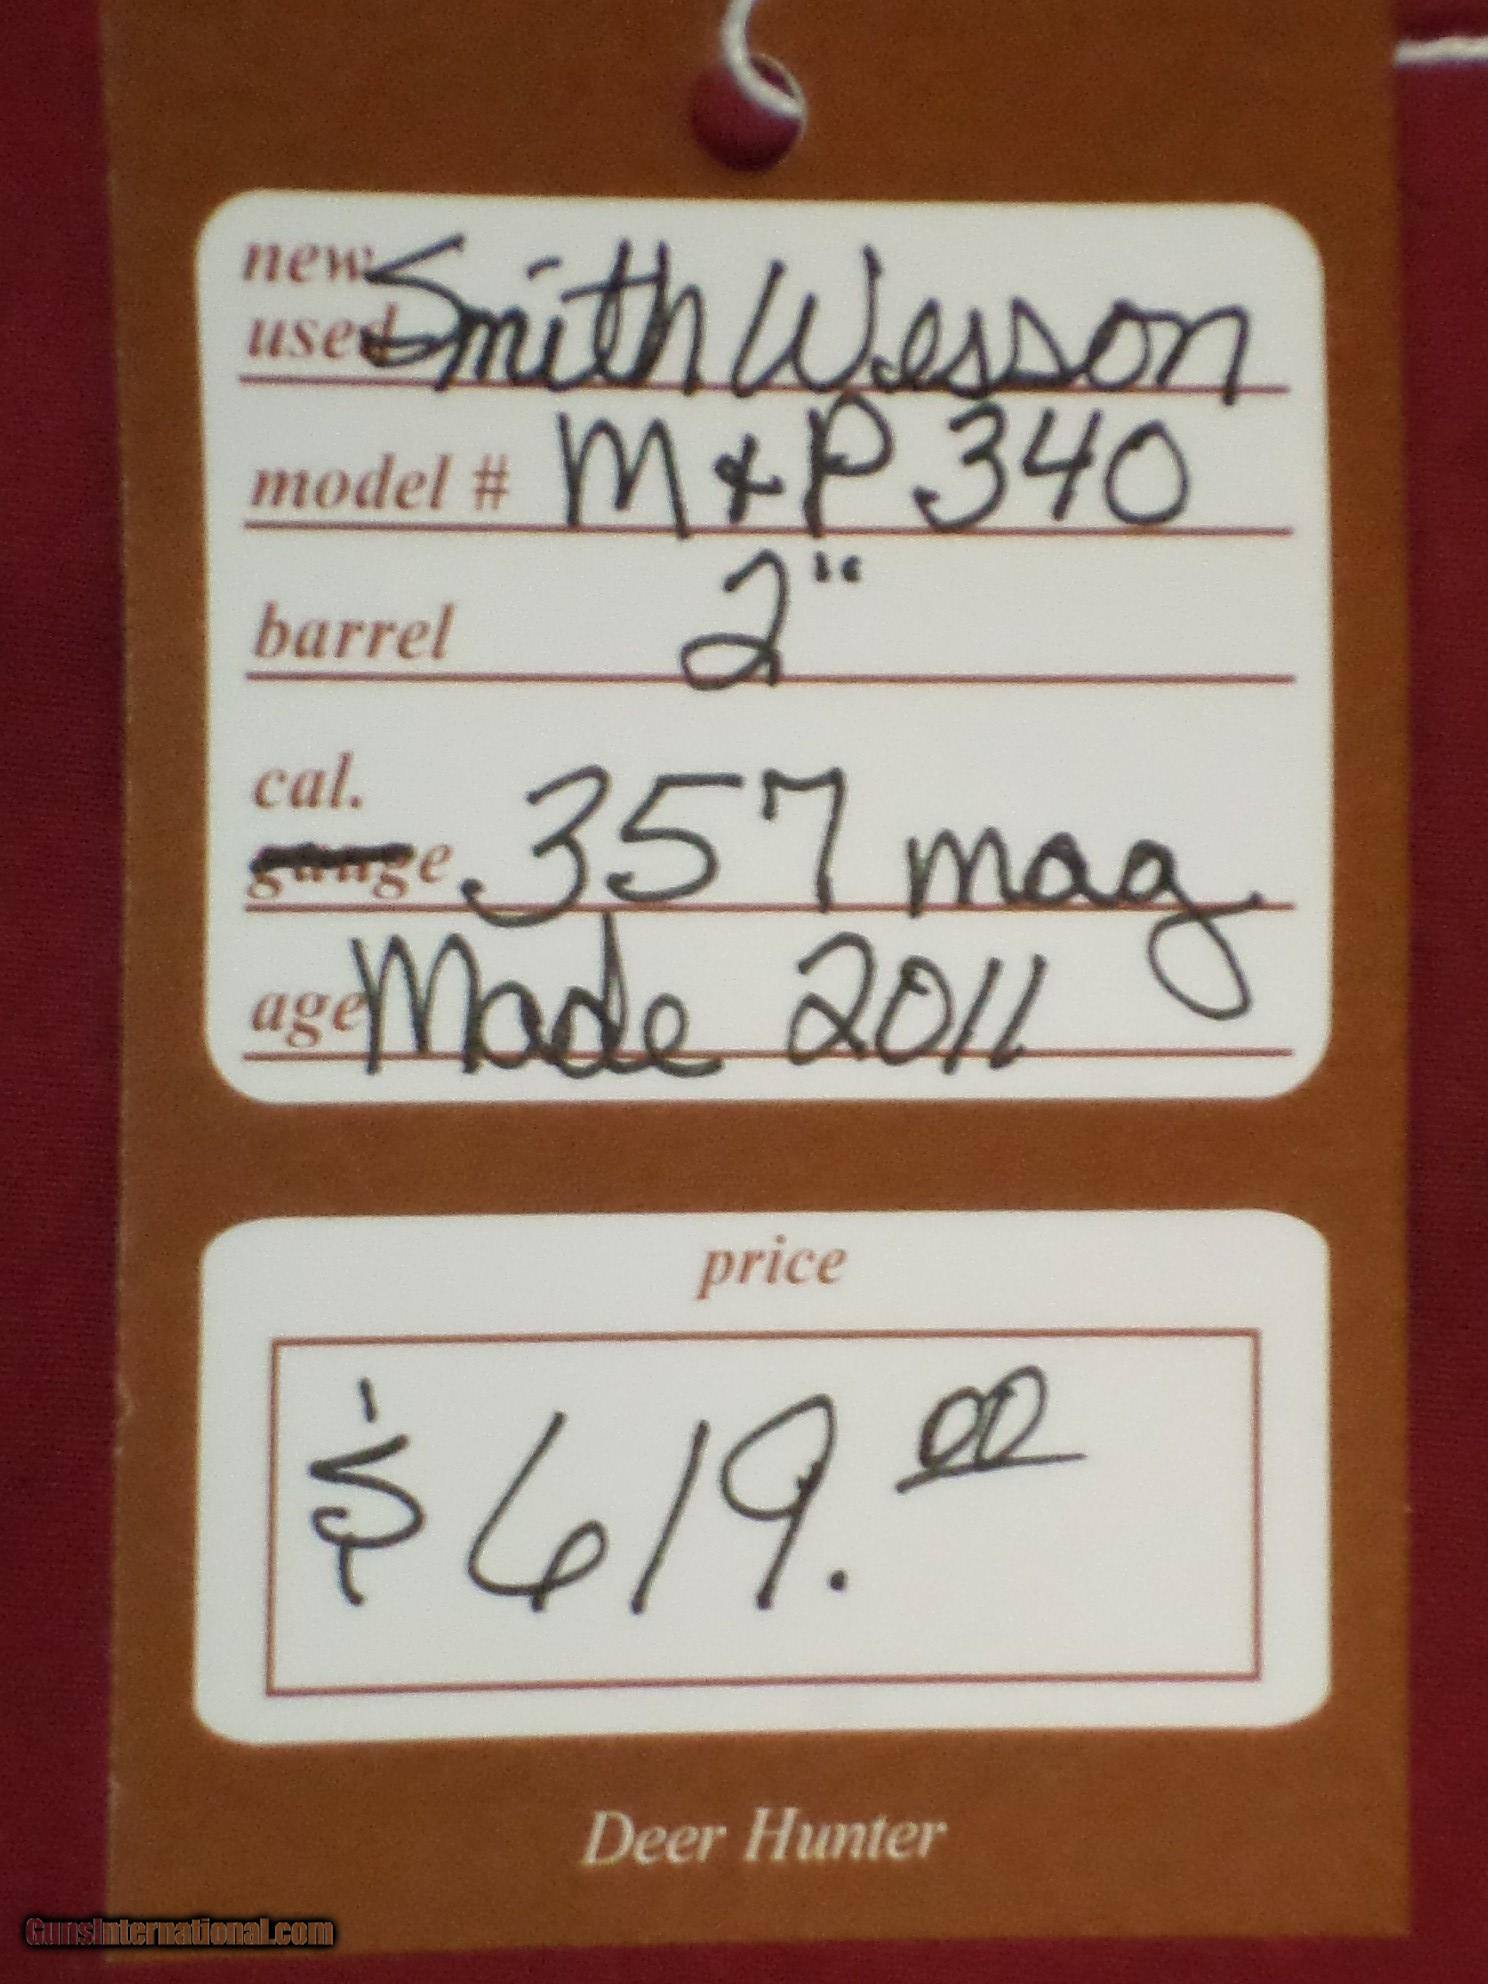 new
used Smith Wesson
model # M & P 340
barrel 2"
cal.
gauge .357 mag
age Made 2011
price
$619.00
Deer Hunter
GunsInternational.com